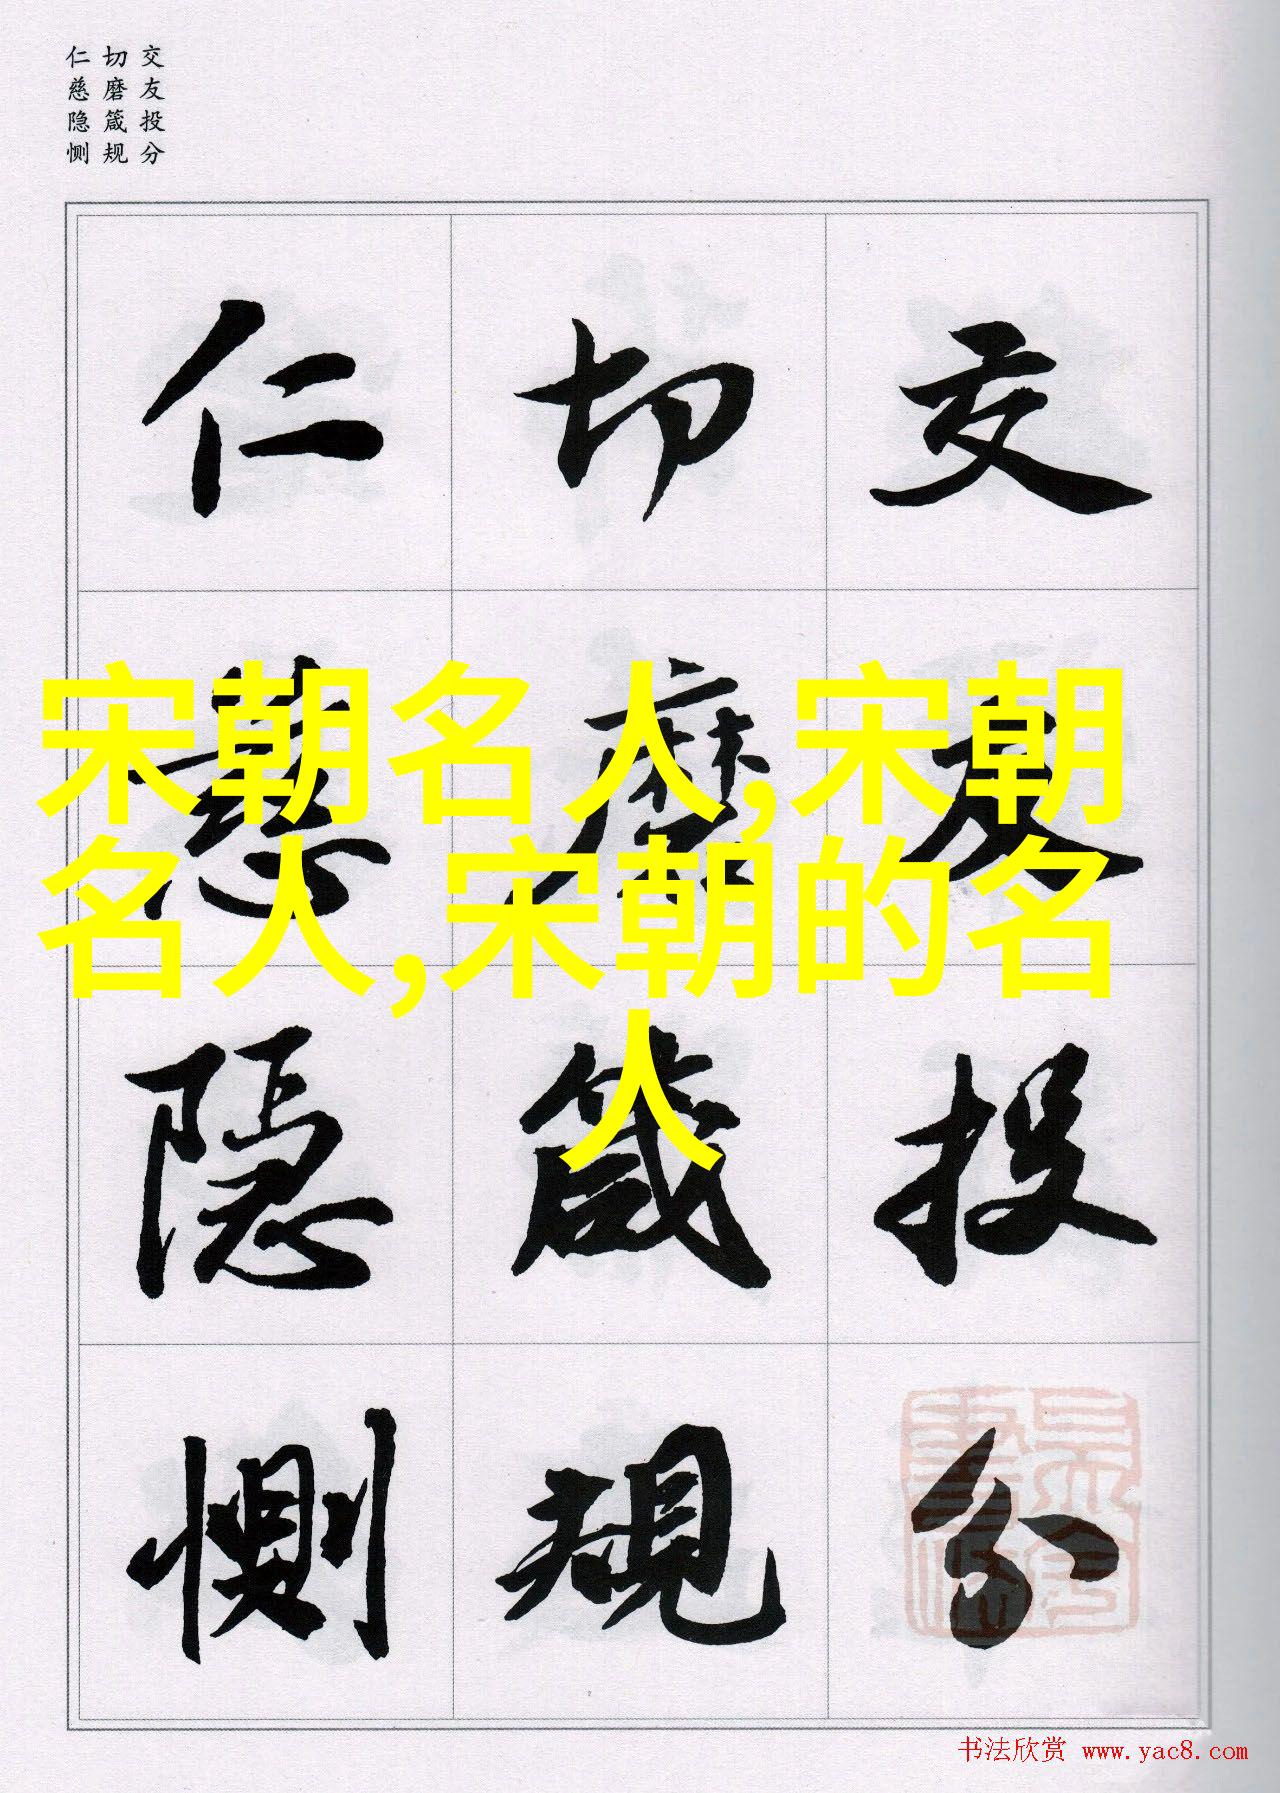 交友投分
切磨箴规
仁慈隐恻
交友投分
切磨箴规
仁慈隐恻
宋朝名人,宋朝
名人,宋朝的名
人
书法欣赏 www.yac8.com